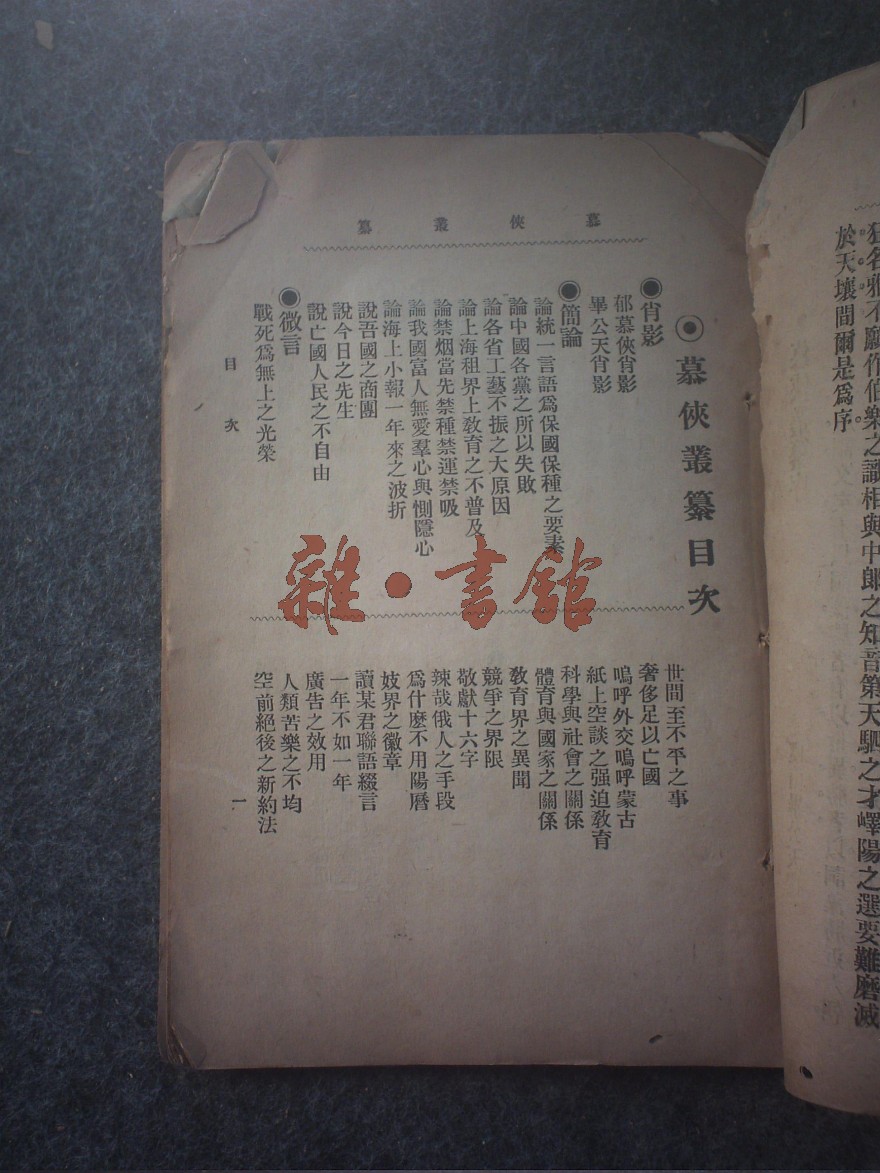 狂名雅不願作伯樂之識相與中郎之知音第天駟之才嶧陽之選要難磨滅
於天壤間爾是爲序
慕俠叢纂
慕俠叢纂目次
肖影
郁慕俠肖影
畢公天肖影
簡論
論統一言語爲保國保種之要素
論中國各黨之所以失敗
論各省工藝不振之大原因
論上海租界上敎育之不普及
論禁烟當先禁種禁運禁吸
論我國富人無愛羣心與惻隱心
論海上小報一年來之波折
說吾國之商團
說今日之先生
說亡國人民之不自由
微言
戰死爲無上之光榮
世間至不平之事
奢侈足以亡國
嗚呼外交嗚呼蒙古
紙上空談之强迫敎育
科學與社會之關係
體育與國家之關係
敎育界之異聞
競爭之界限
敬獻十六字
辣哉俄人之手段
爲什麽不用陽曆
妓界之徽章
讀某君聯語綴言
一年不如一年
廣告之效用
人類苦樂之不均
空前絕後之新約法
目次
一
雜·書館